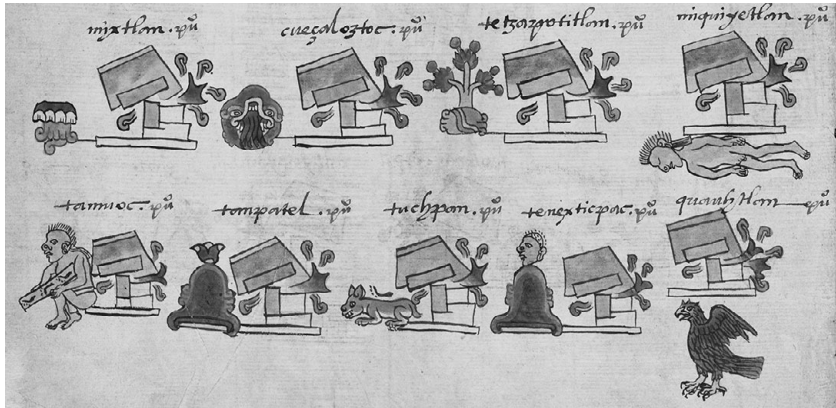 mixtlan . pũ cueçaloztoc . pũ tetzapotitlan . pũ miquiyetlan . pũ
tamuoc . pũ tampatel . pũ tuchpan . pũ tenexticpac . pũ quauhtlan pũ